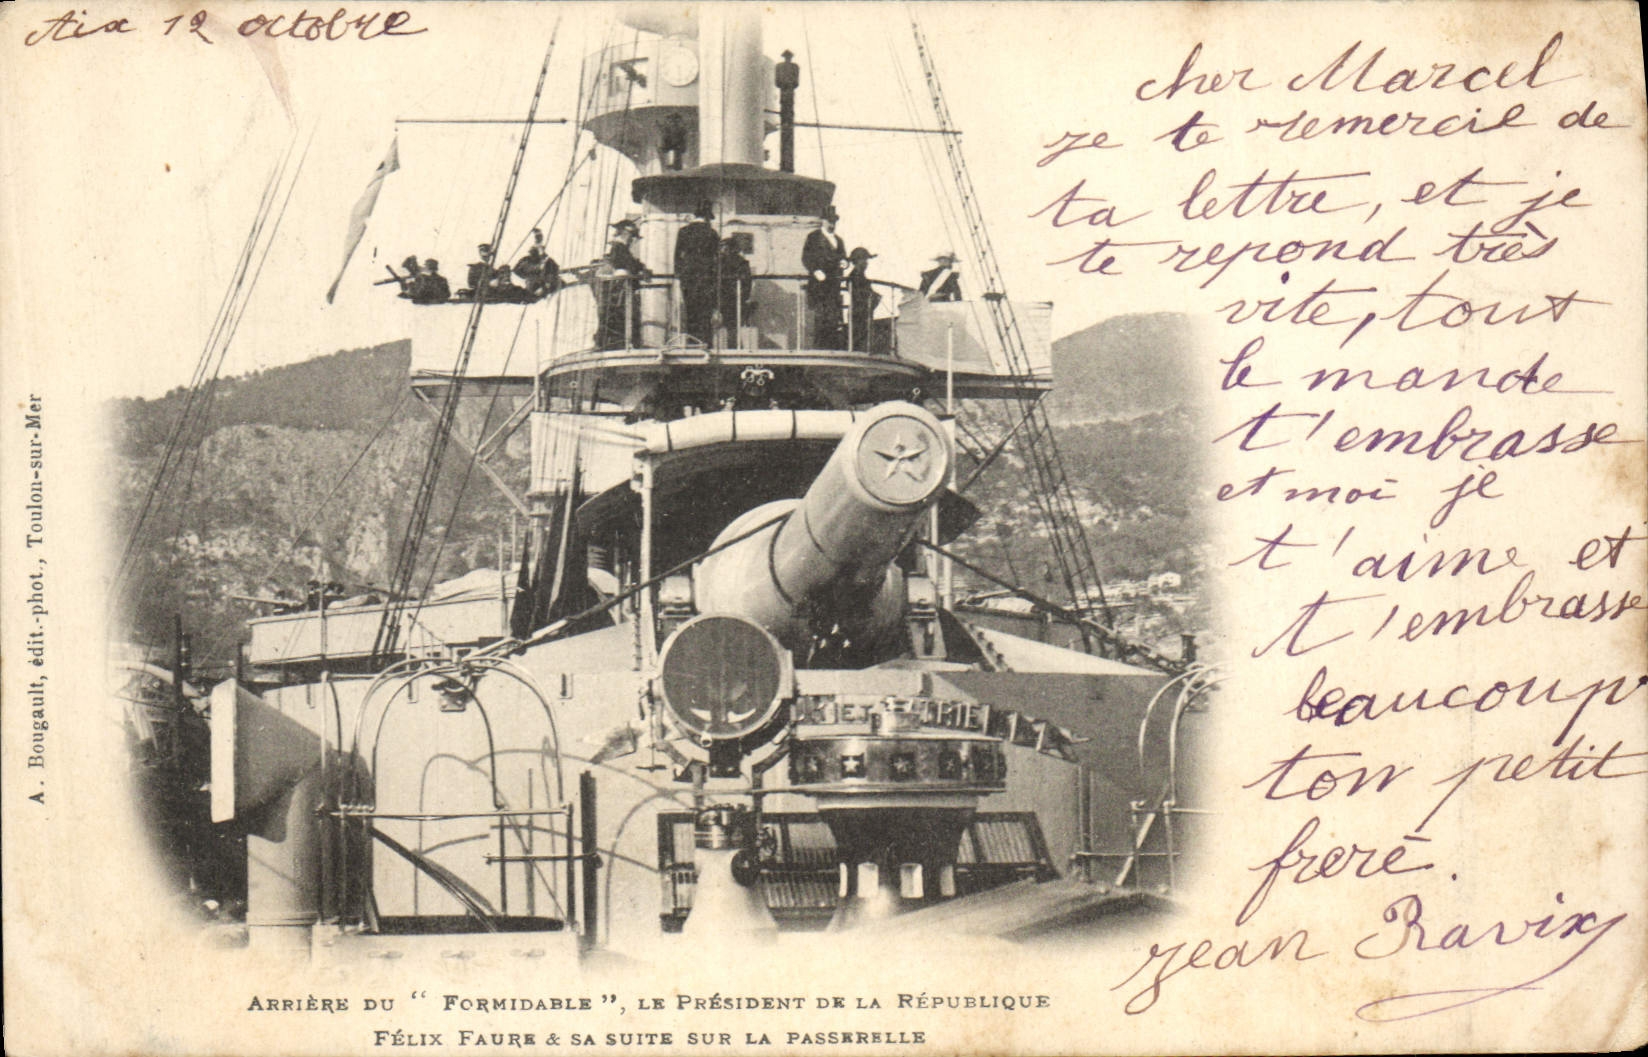 Aix 12 octobre
cher Marcel
je te remercil de
ta lettre, et je
te repond très
vite, tout
le mande
t'embrasse
et moi je
t'aime et
t'embrasse
beaucoup
ton petit
frere.
Jean Ravix
A. Bougault, édit.-phot., Toulon-sur-Mer
ARRIÈRE DU “ FORMIDABLE ”, LE PRÉSIDENT DE LA RÉPUBLIQUE
FÉLIX FAURE & SA SUITE SUR LA PASSERELLE